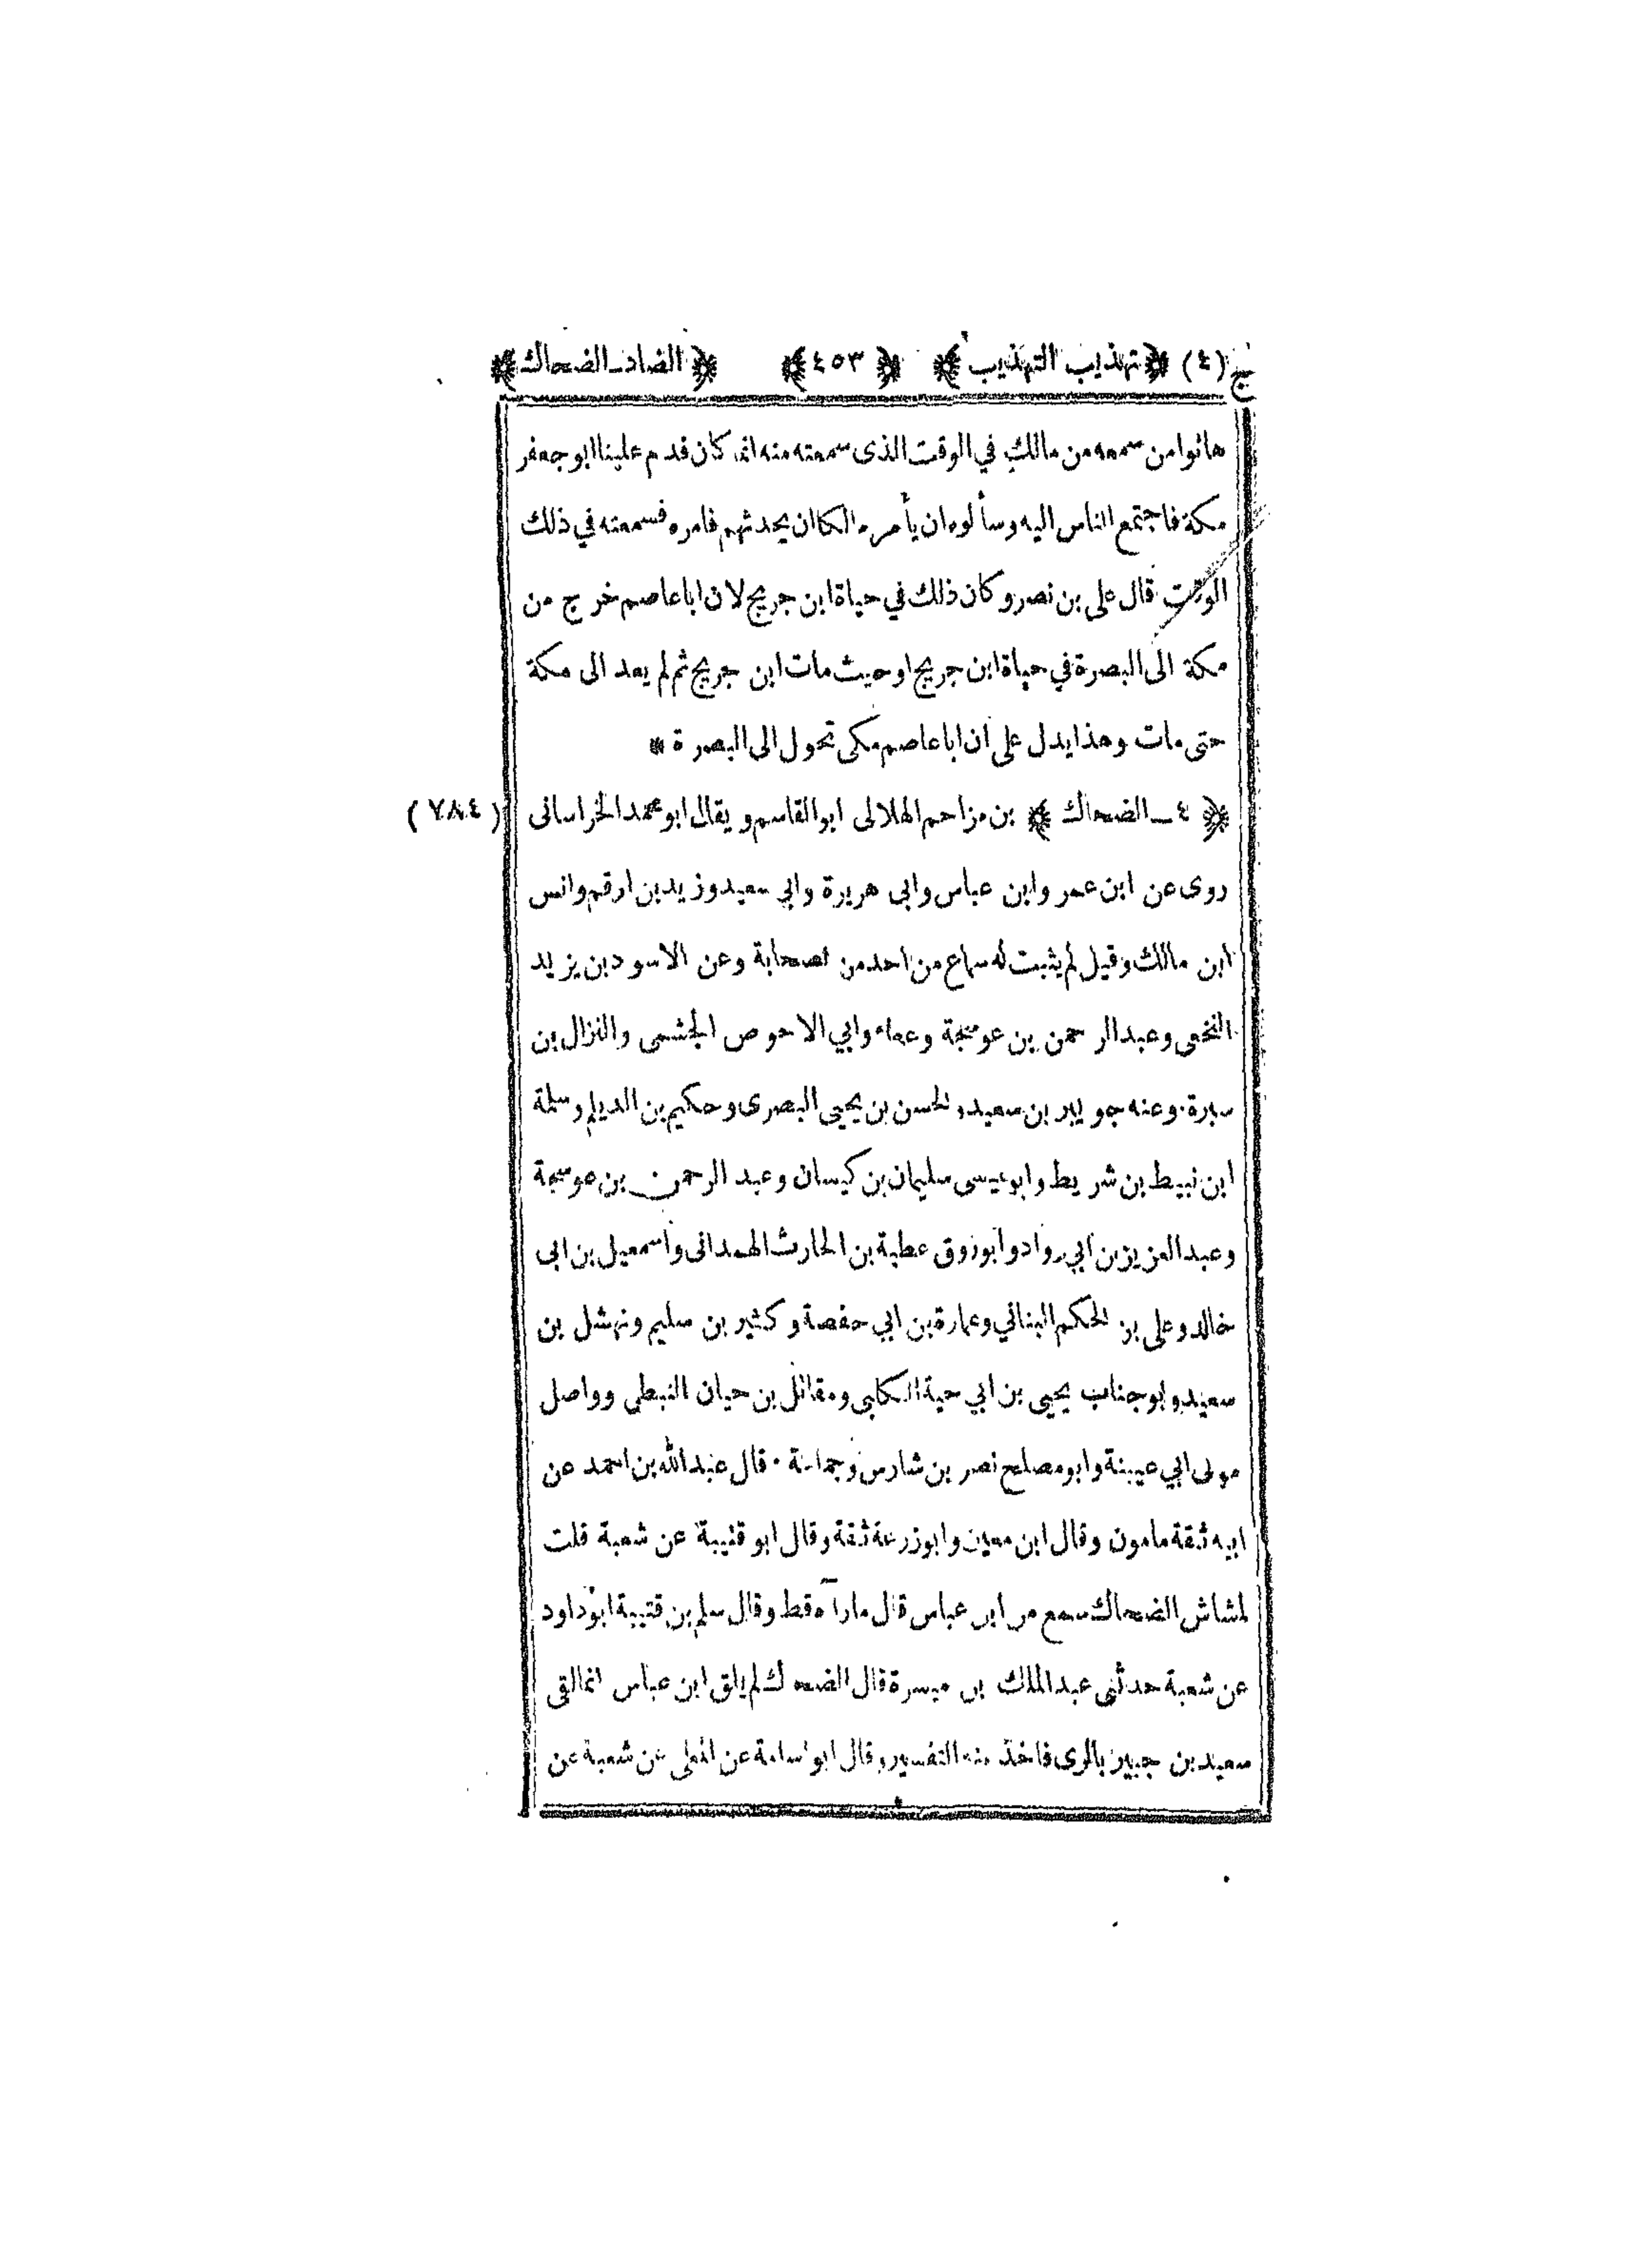 ج (٤) ﴿ تهذيب التهذيب ﴾ ﴿ ٤٥٣ ﴾ ﴿ الضاد ـ الضحاك ﴾
هاتوا من سمعه من مالك في الوقت الذى سمعته منه انما كان قدم علينا ابو جعفر
مكة فاجتمع الناس اليه وسألوه ان يأمر مالكا ان يحدثهم فامره فسمعته في ذلك
الوقت قال على بن نصر وكان ذلك في حياة ابن جريج لان ابا عاصم خرج من
مكة الى البصرة في حياة ابن جريج او حيث مات ابن جريج ثم لم يعد الى مكة
حتى مات وهذا يدل على ان ابا عاصم مكى تحول الى البصرة *
﴿ ٤ ـ الضحاك ﴾ بن مزاحم الهلالى ابو القاسم و يقال ابو محمد الخراسانى (٧٨٤)
روى عن ابن عمر وابن عباس وابى هريرة وابي سعيد وزيد بن ارقم وانس
ابن مالك وقيل لم يثبت له سماع من احد من الصحابة وعن الاسود بن يزيد
النخعى وعبد الرحمن بن عوسجة وعطاء وابي الاحوص الجشمى والنزال بن
سبرة. وعنه جويبر بن سعيد والحسن بن يحيى البصرى وحكيم بن الديلم وسلمة
ابن نبيط بن شريط وابو عيسى سليمان بن كيسان وعبد الرحمن بن عوسجة
وعبد العزيز بن ابي رواد وابو روق عطية بن الحارث الهمدانى واسمعيل بن ابى
خالد وعلى بن الحكم البناني وعمارة بن ابي حفصة وكثير بن سليم ونهشل بن
سعيد وابو جناب يحيى بن ابي حية الكلبى ومقاتل بن حيان النبطى وواصل
مولى ابي عيينة وابو مصلح نصر بن شارس وجماعة. قال عبد الله بن احمد عن
ابيه ثقة مامون وقال ابن معين وابو زرعة ثقة وقال ابو قتيبة عن شعبة قلت
لمشاش الضحاك سمع من ابن عباس قال ما رآه قط وقال سلم بن قتيبة ابو داود
عن شعبة حدثنى عبد الملك بن ميسرة قال الضحاك لم يلق ابن عباس انما لقى
سعيد بن جبير بالرى فاخذ منه التفسير وقال ابو اسامة عن المعلى عن شعبة عن